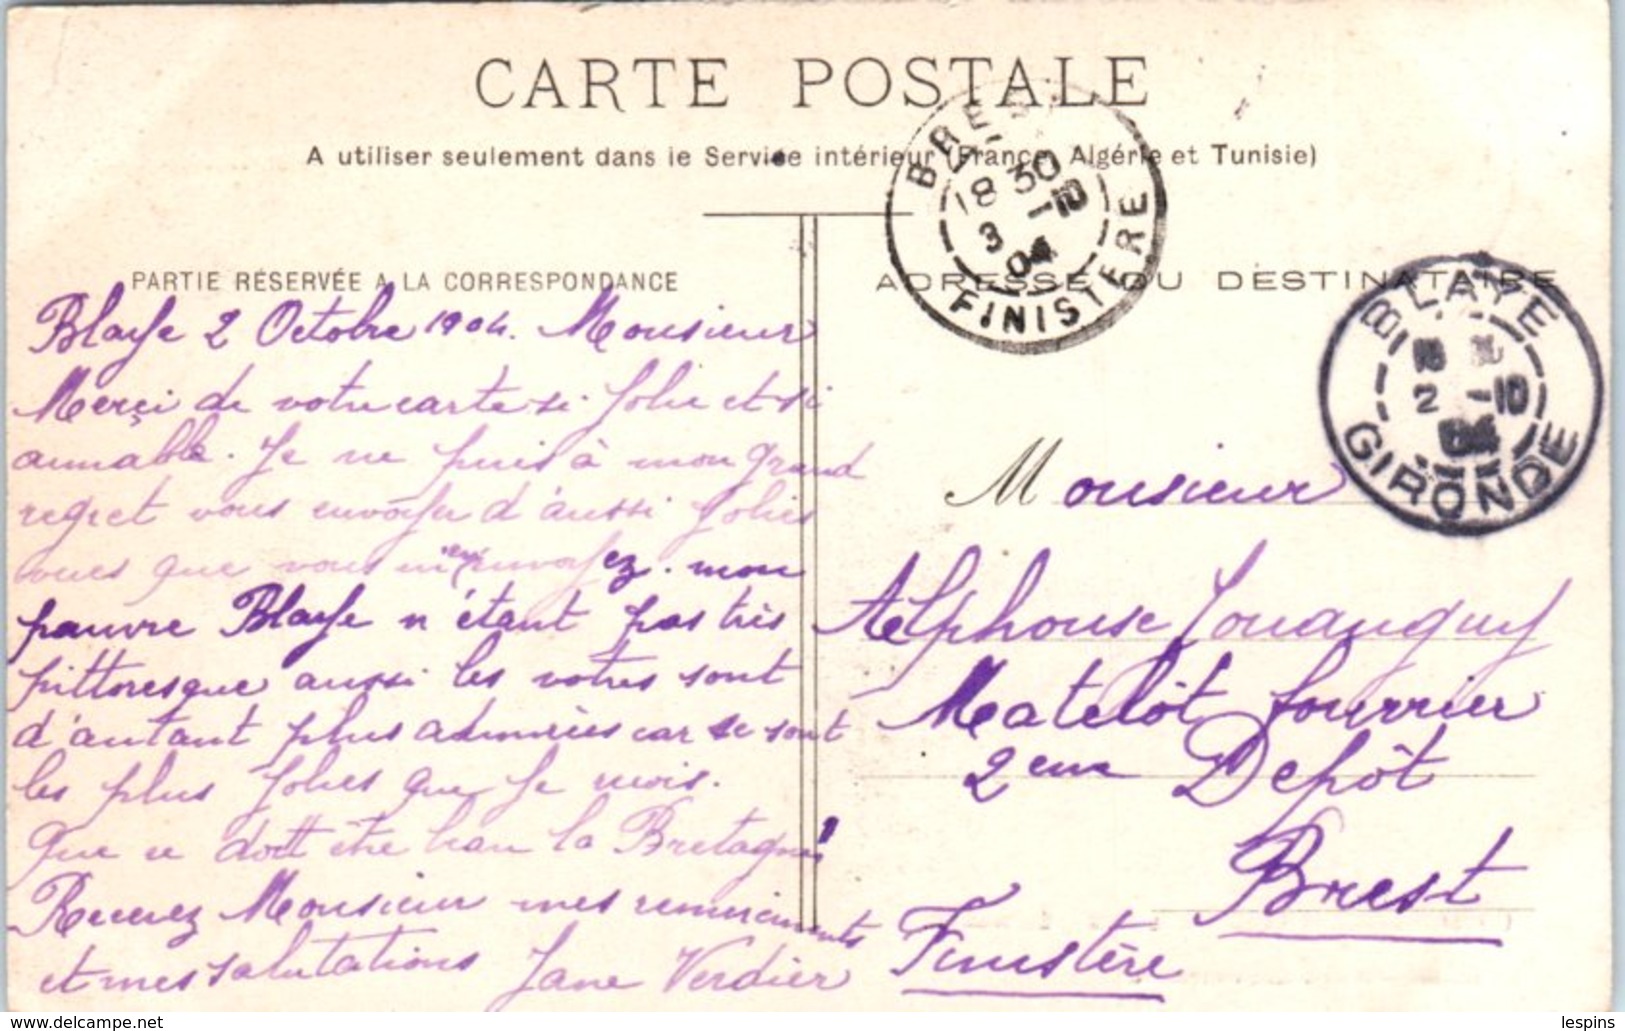 CARTE POSTALE
A utiliser seulement dans le Service intérieur (France, Algérie et Tunisie)
BREST
18 30
3 -10
04
FINISTERE
PARTIE RÉSERVÉE A LA CORRESPONDANCE
Blaye 2 Octobre 1904. Monsieur
Merci de votre carte si jolie et si
aimable. Je ne puis à mon grand
regret vous envoyer d'aussi jolies
vues que vous m'envoyez. mon
pauvre Blaye n'étant pas très
pittoresque aussi les votres sont
d'autant plus admirées car ce sont
les plus jolies que je reçois.
Que ce doit être beau la Bretagne!
Recevez Monsieur mes remerciements
et mes salutations Jane Verdier
ADRESSE DU DESTINATAIRE
BLAYE
2 -10
04
GIRONDE
Monsieur
Alphonse Jouanguy
Matelôt fourrier
2eme Depôt
Brest
Finistère
lespins